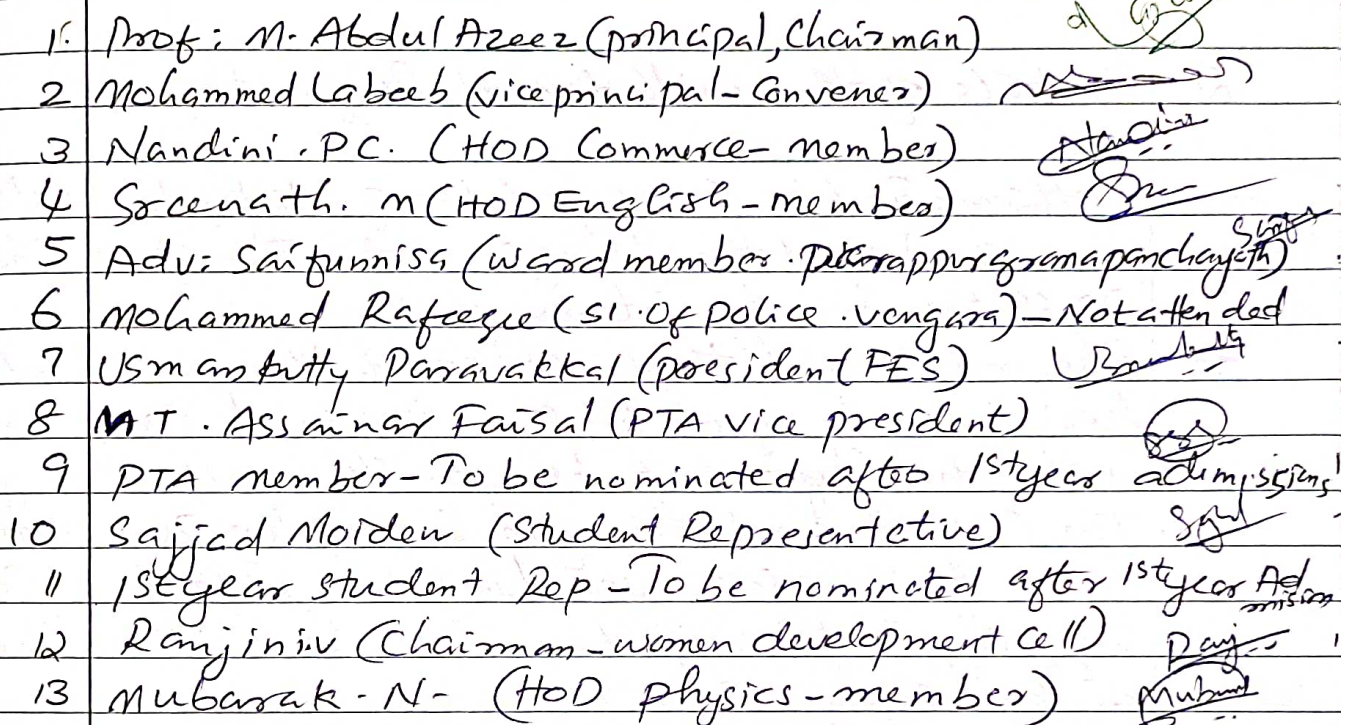 1. Prof: M. Abdul Azeez (principal, Chairman)
2 Mohammed Labeeb (vice principal - Convener)
3 Nandini . P.C. (HOD Commerce - member) Nandini
4 Sreenath. M (HOD English - member) Sree
5 Adv: Saifunnisa (ward member . gramapanchayath)
6 Mohammed Rafeeque (SI. Of police . vengara) - Not attended
7 Usmankutty Paravakkal (president FES)
8 MT . Assainar Faisal (PTA vice president)
9 PTA member - To be nominated after 1st year admissions
10 Sajjad Moideen (Student Representative)
11 1st year student Rep - To be nominated after 1st year Admision
12 Ranjini.v (Chairman - women development cell)
13 Mubarak - N - (HOD physics - member)